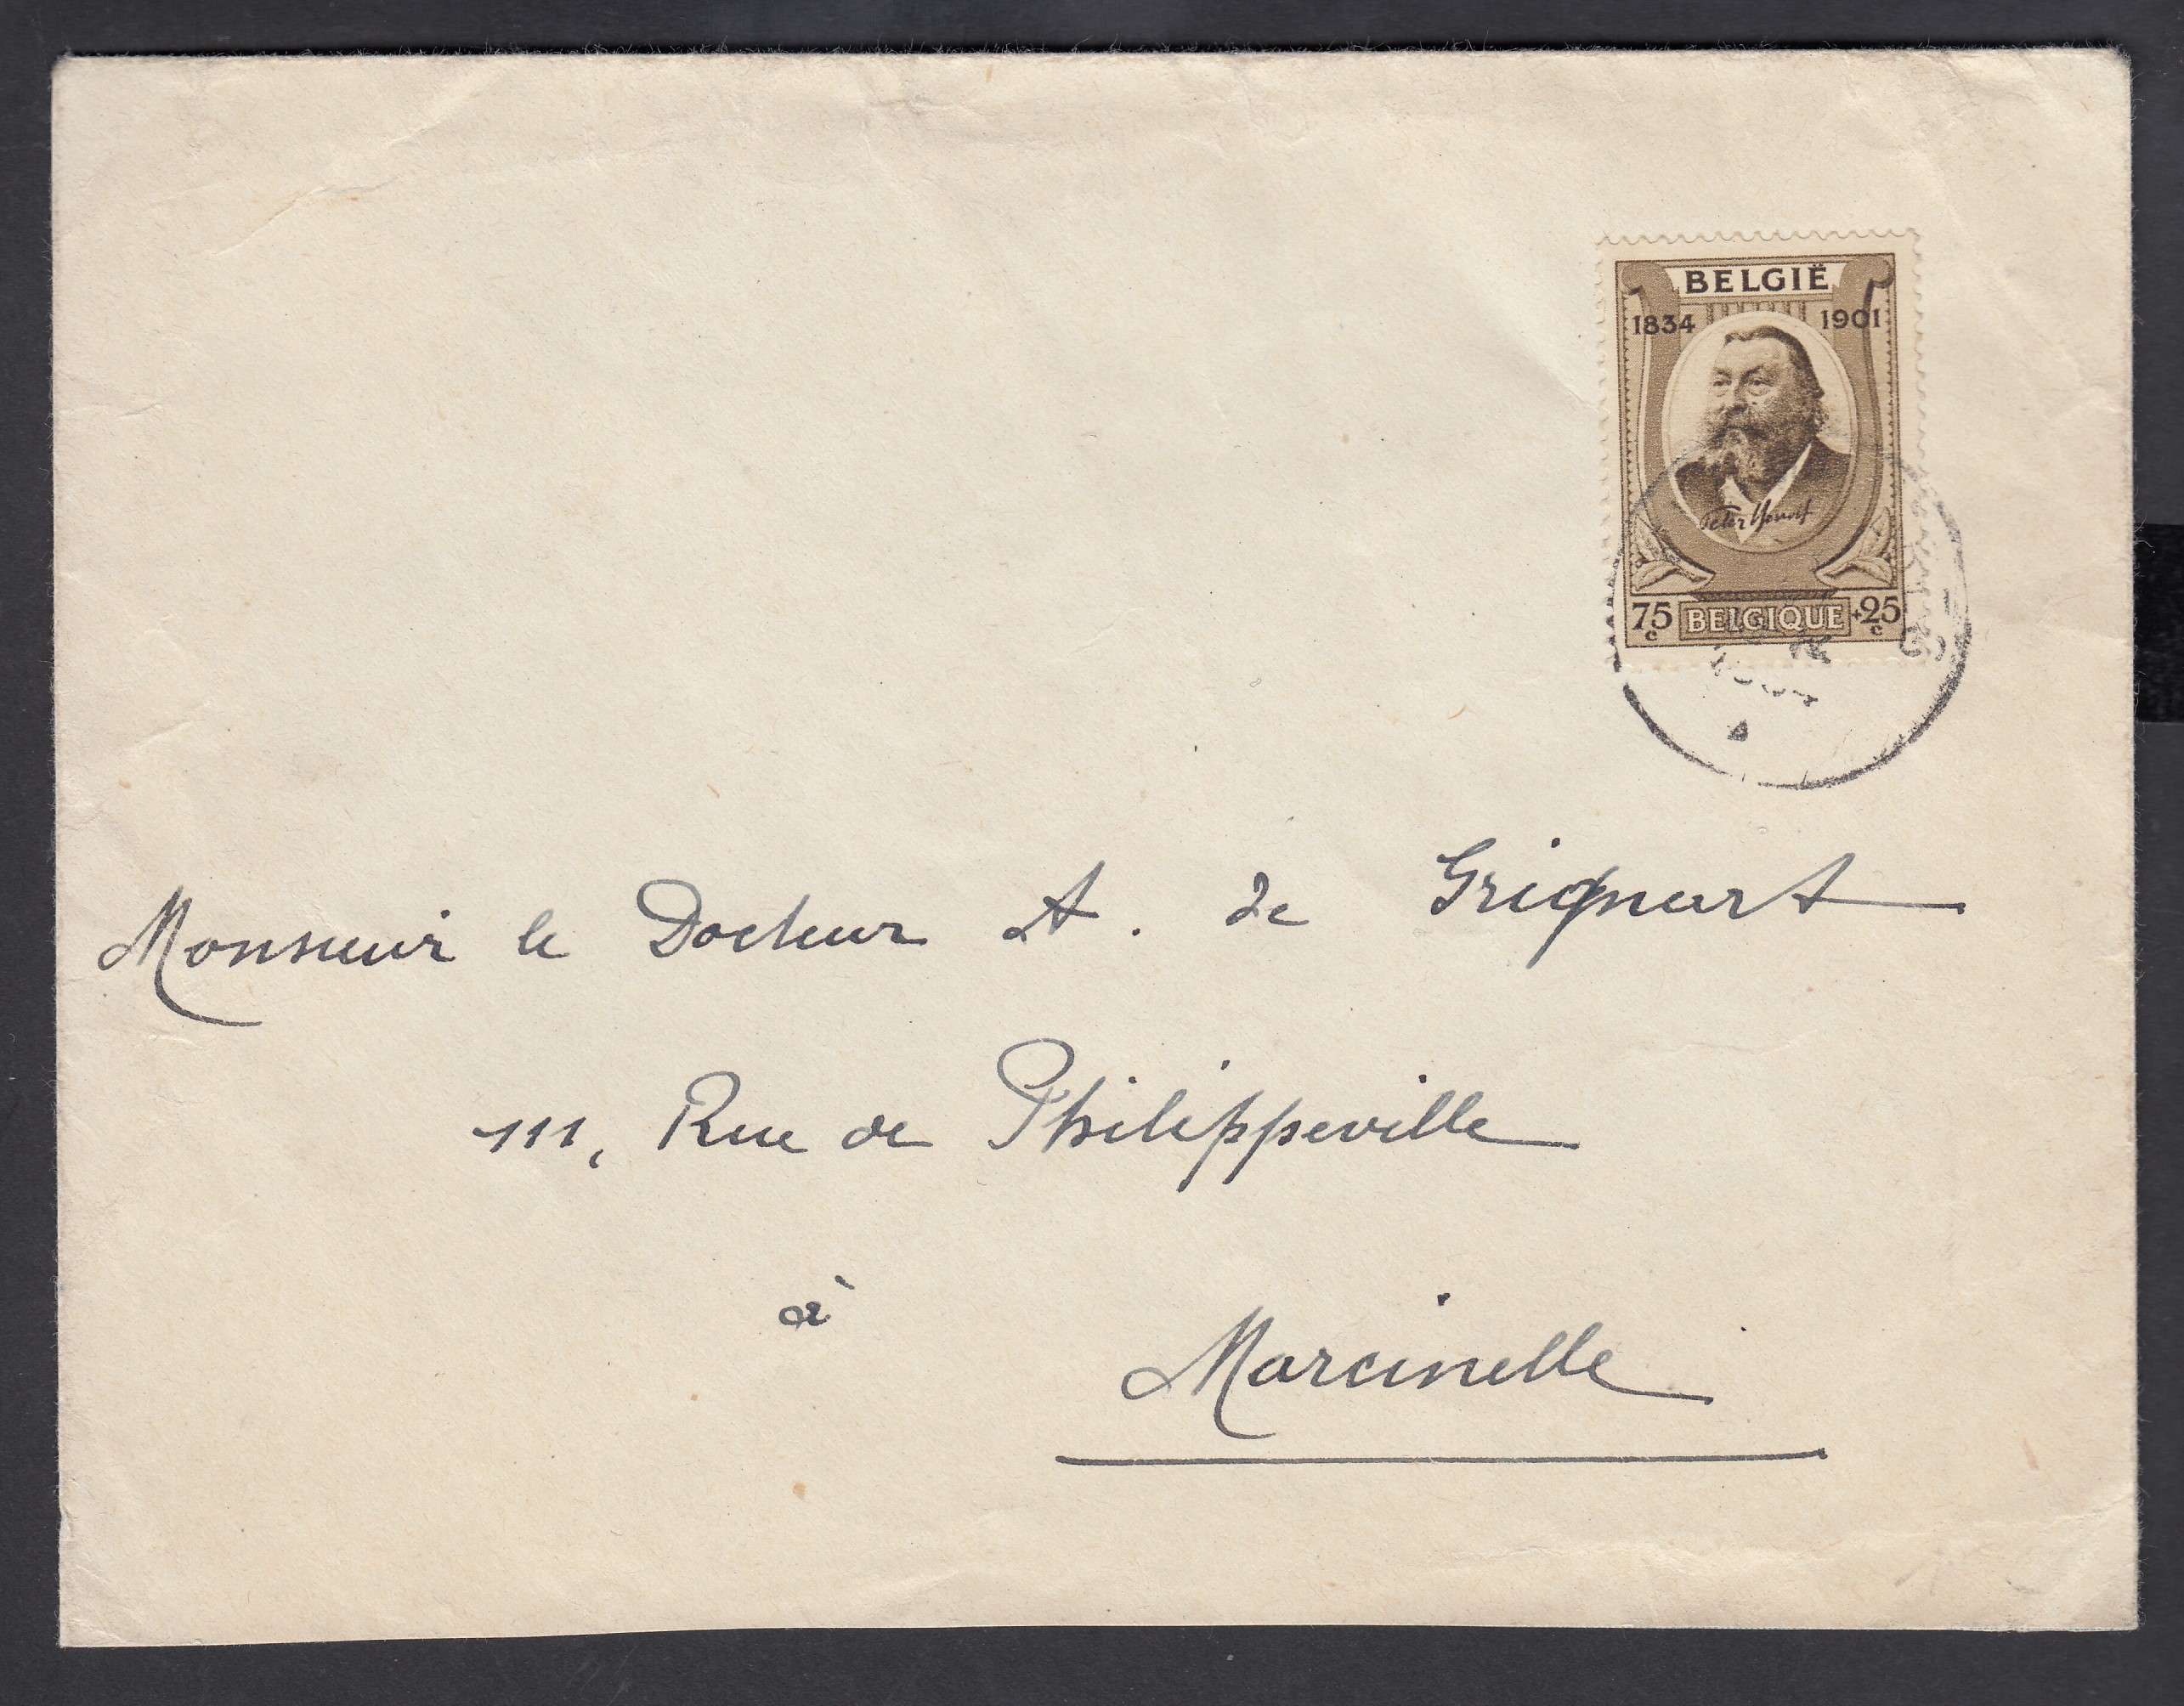 BELGIË
1834 1901
Peter Benoit
75 c BELGIQUE +25 c
Monsieur le Docteur A. de Grignart
111, Rue de Philippeville
à
Marcinelle